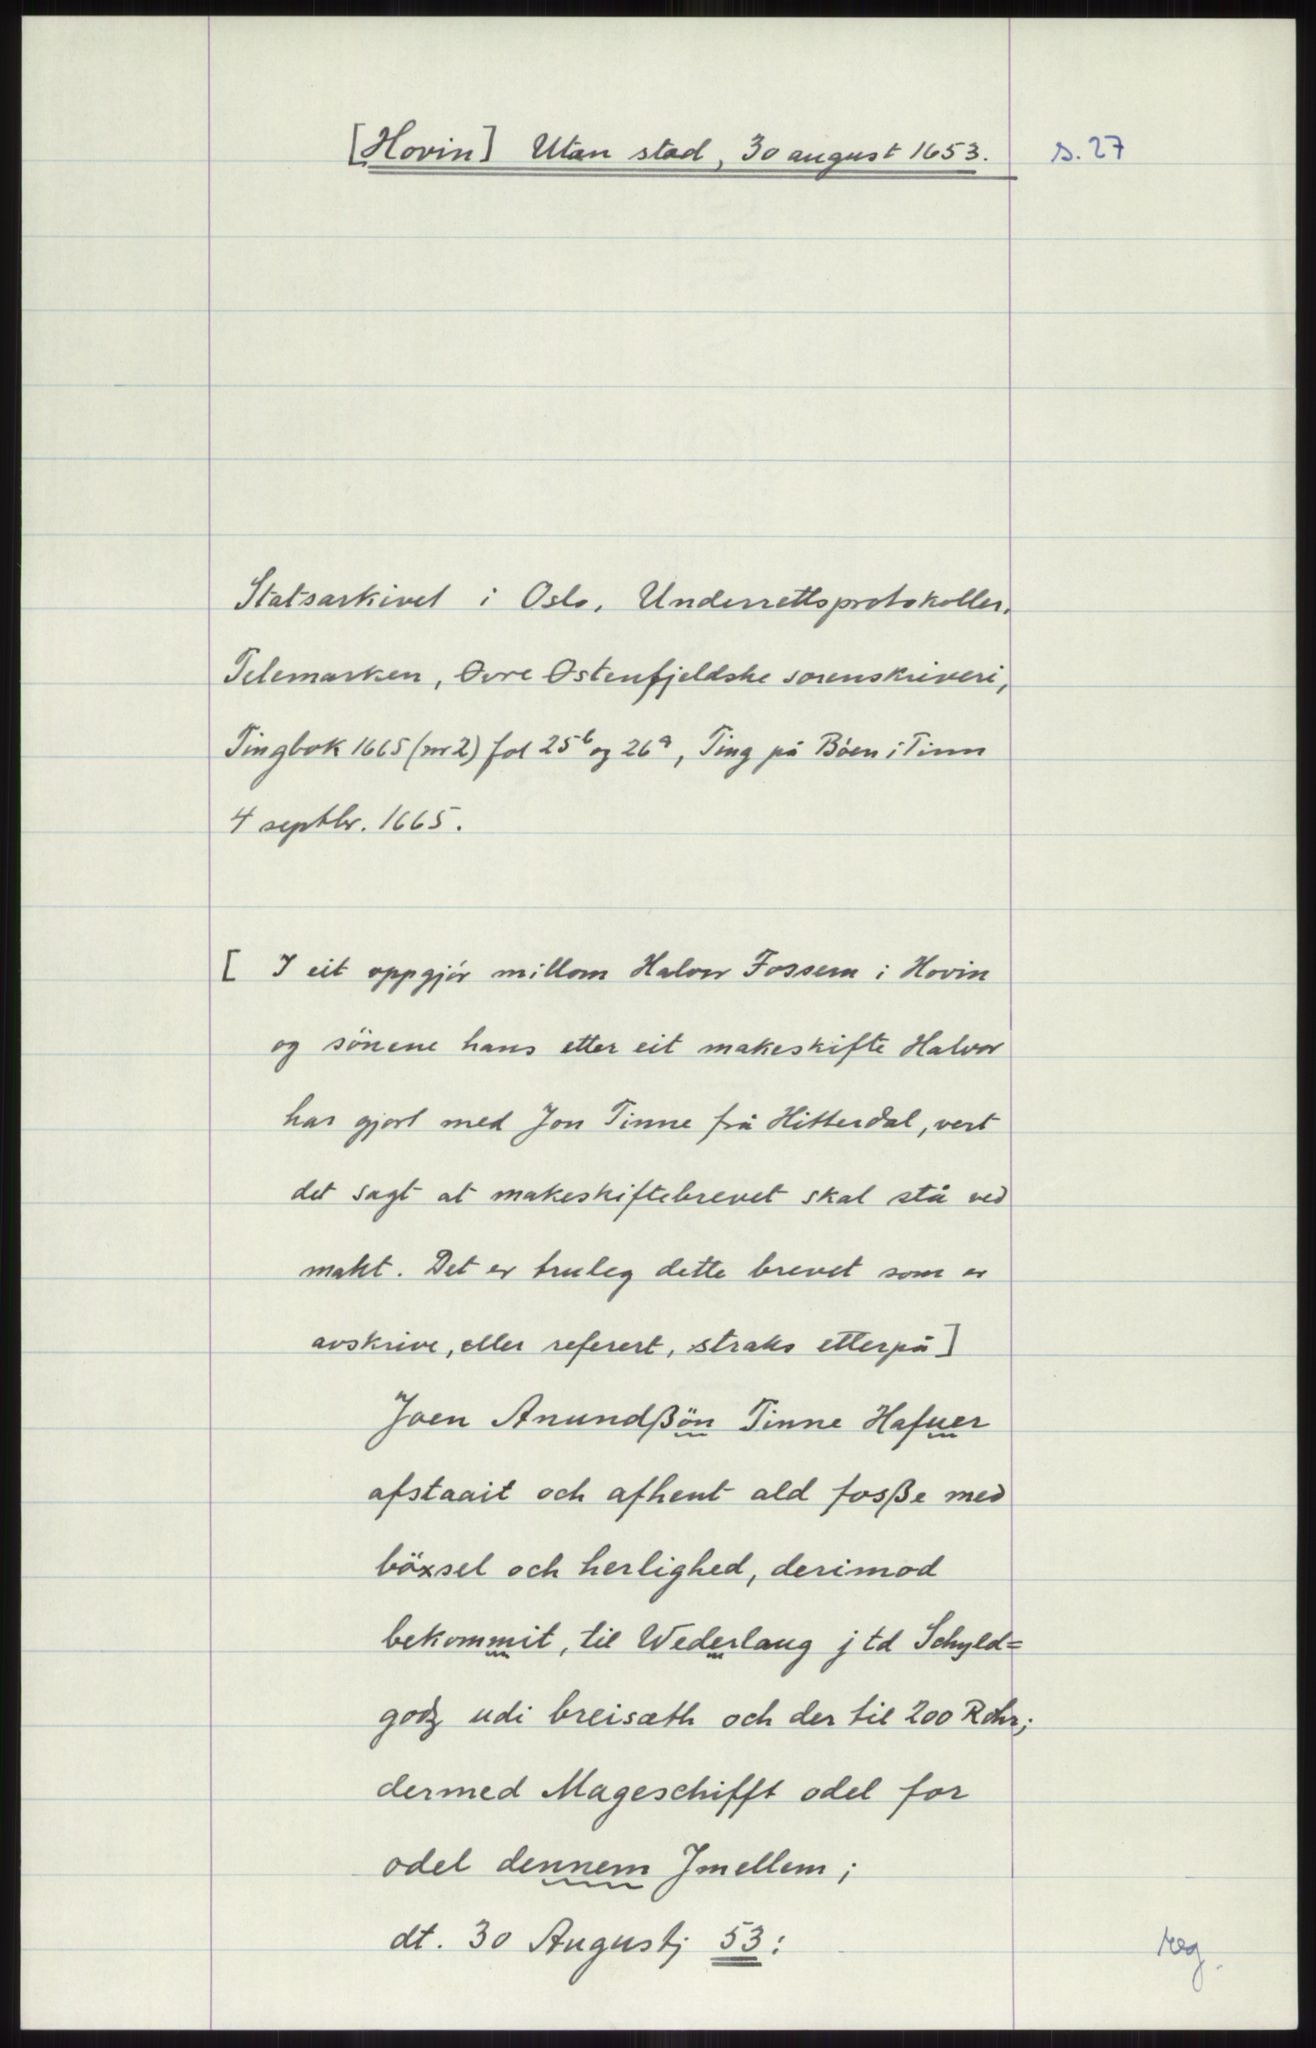 [Hovin] Utan stad, 30 august 1653.
s. 27
Statsarkivet i Oslo. Underrettsprotokoller.
Telemarken, Øvre Østenfjeldske sorenskriveri,
Tingbok 1665 (nr 2) fol 25b og 26a, Ting på Böen i Tinn
4 septbr. 1665.
[ I eit oppgjör millom Halvor Fossem i Hovin
og sönene hans etter eit makeskifte Halvor
har gjort med Jon Tinne frå Hitterdal, vert
det sagt at makeskiftebrevet skal stå ved
makt. Det er truleg dette brevet som er
avskrive, eller referert, straks etterpå]
Joen Anundßön Tinne Hafuer
afstaait och afhent ald fosße med
böxsel och herlighed, derimod
bekommit, til Wederlaug j td Schyld=
godz udi breisæth och der til 200 Rdhr;
dermed Mageschifft odel for
odel dennem Jmellem;
dt. 30 Augustj 53:
reg.